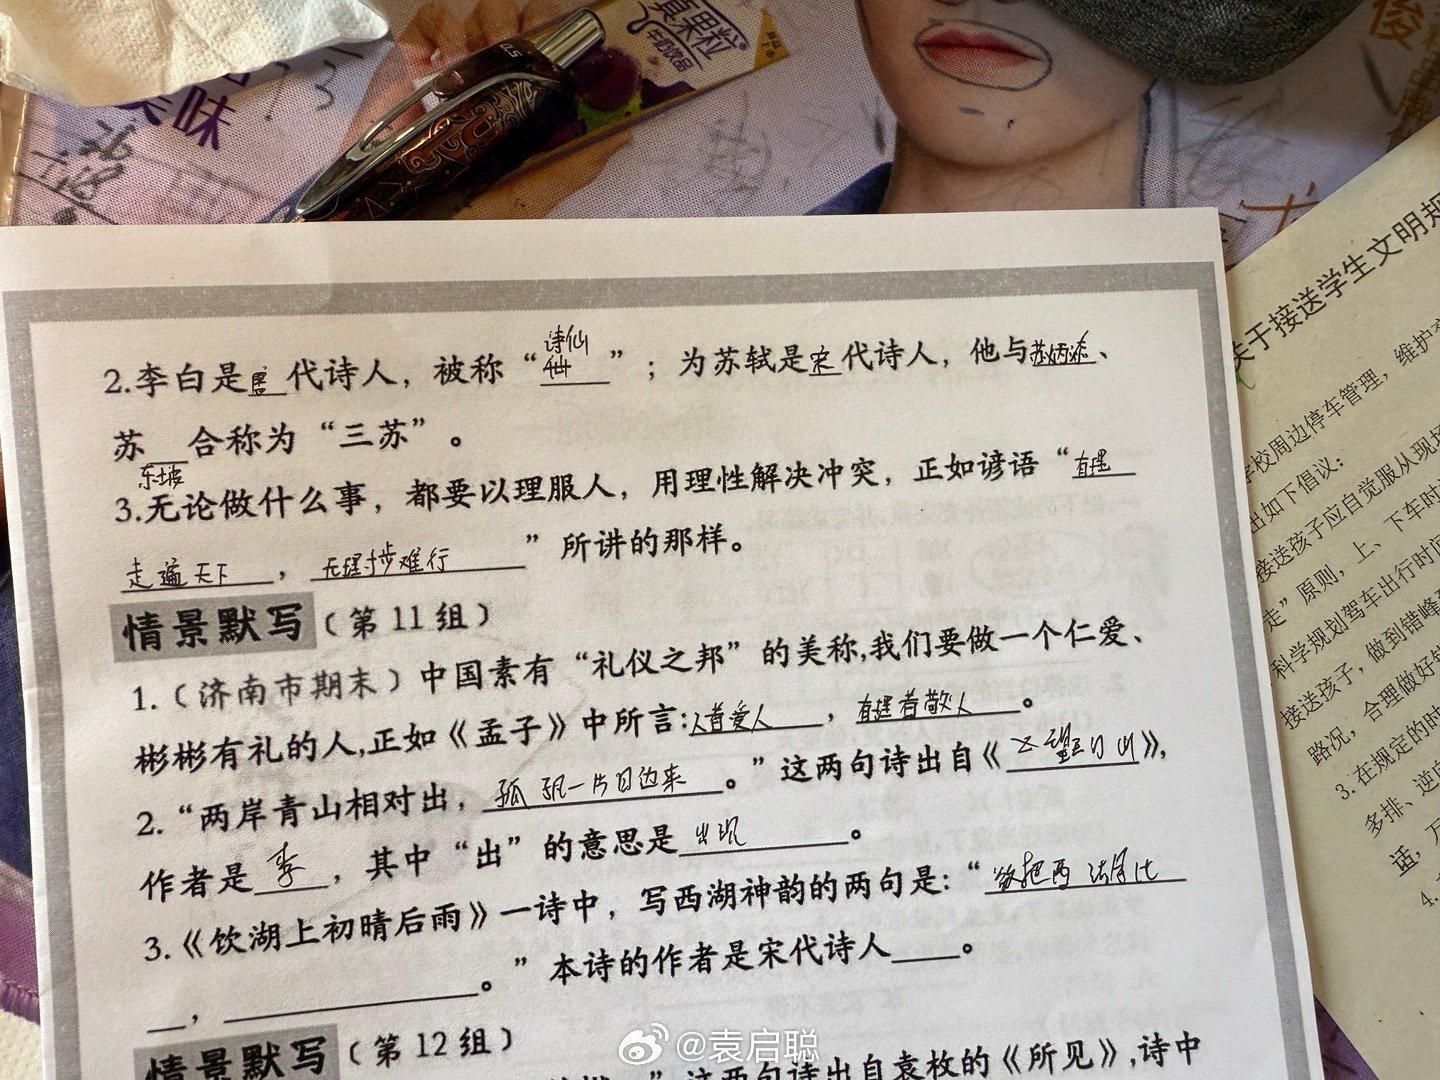 真果粒
牛奶饮品
0.5
味
俊
2.李白是代诗人，被称“诗仙”；为苏轼是宋代诗人，他与苏炳添、
苏__合称为“三苏”。
东坡
3.无论做什么事，都要以理服人，用理性解决冲突，正如谚语“有理
走遍天下，无理寸步难行”所讲的那样。
情景默写（第11组）
1.（济南市期末）中国素有“礼仪之邦”的美称,我们要做一个仁爱、
彬彬有礼的人,正如《孟子》中所言:人者爱人，有理者敬人。
2.“两岸青山相对出，孤帆一片日边来。”这两句诗出自《望山》，
作者是李，其中“出”的意思是出现。
3.《饮湖上初晴后雨》一诗中，写西湖神韵的两句是：“欲把西湖比
__，____。”本诗的作者是宋代诗人____。
情景默写（第12组）
”这两句诗出自袁枚的《所见》,诗中
关于接送学生文明规
学校周边停车管理，维护交
出如下倡议：
接送孩子应自觉服从现场
走”原则，上、下车时
科学规划驾车出行时间
接送孩子，做到错峰
路况，合理做好
3.在规定的时
多排、逆向
话，万
4.
@袁启聪